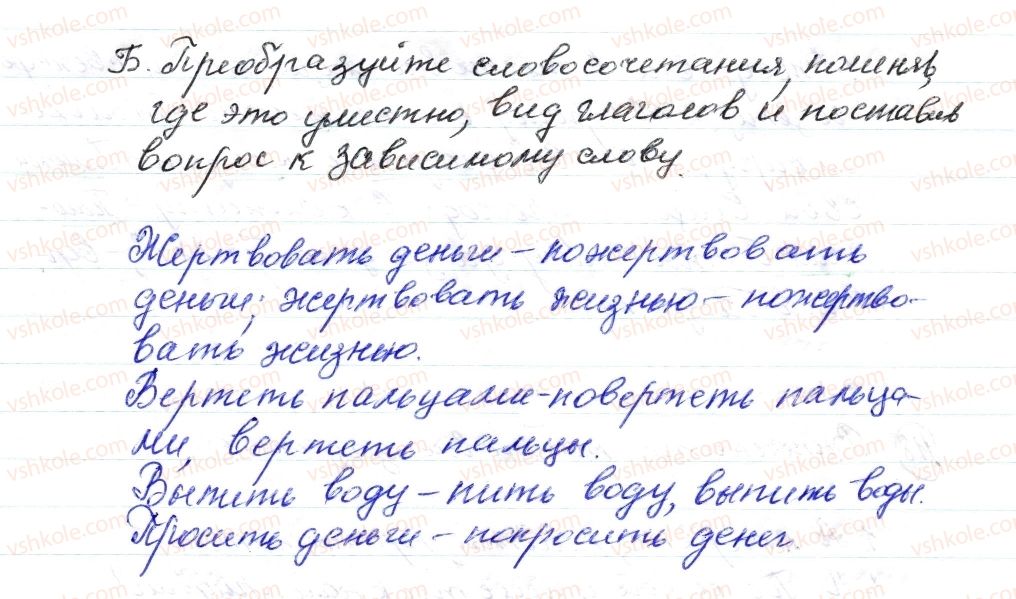 Б. Преобразуйте словосочетания, поменяв,
где это уместно, вид глаголов и поставив
вопрос к зависимому слову.
Жертвовать деньги - пожертвовать
деньги; жертвовать жизнью - пожертво-
вать жизнью.
Вертеть пальцами - повертеть пальца-
ми, вертеть пальцы.
Выпить воду - пить воду, выпить воды.
Просить деньги - попросить денег.